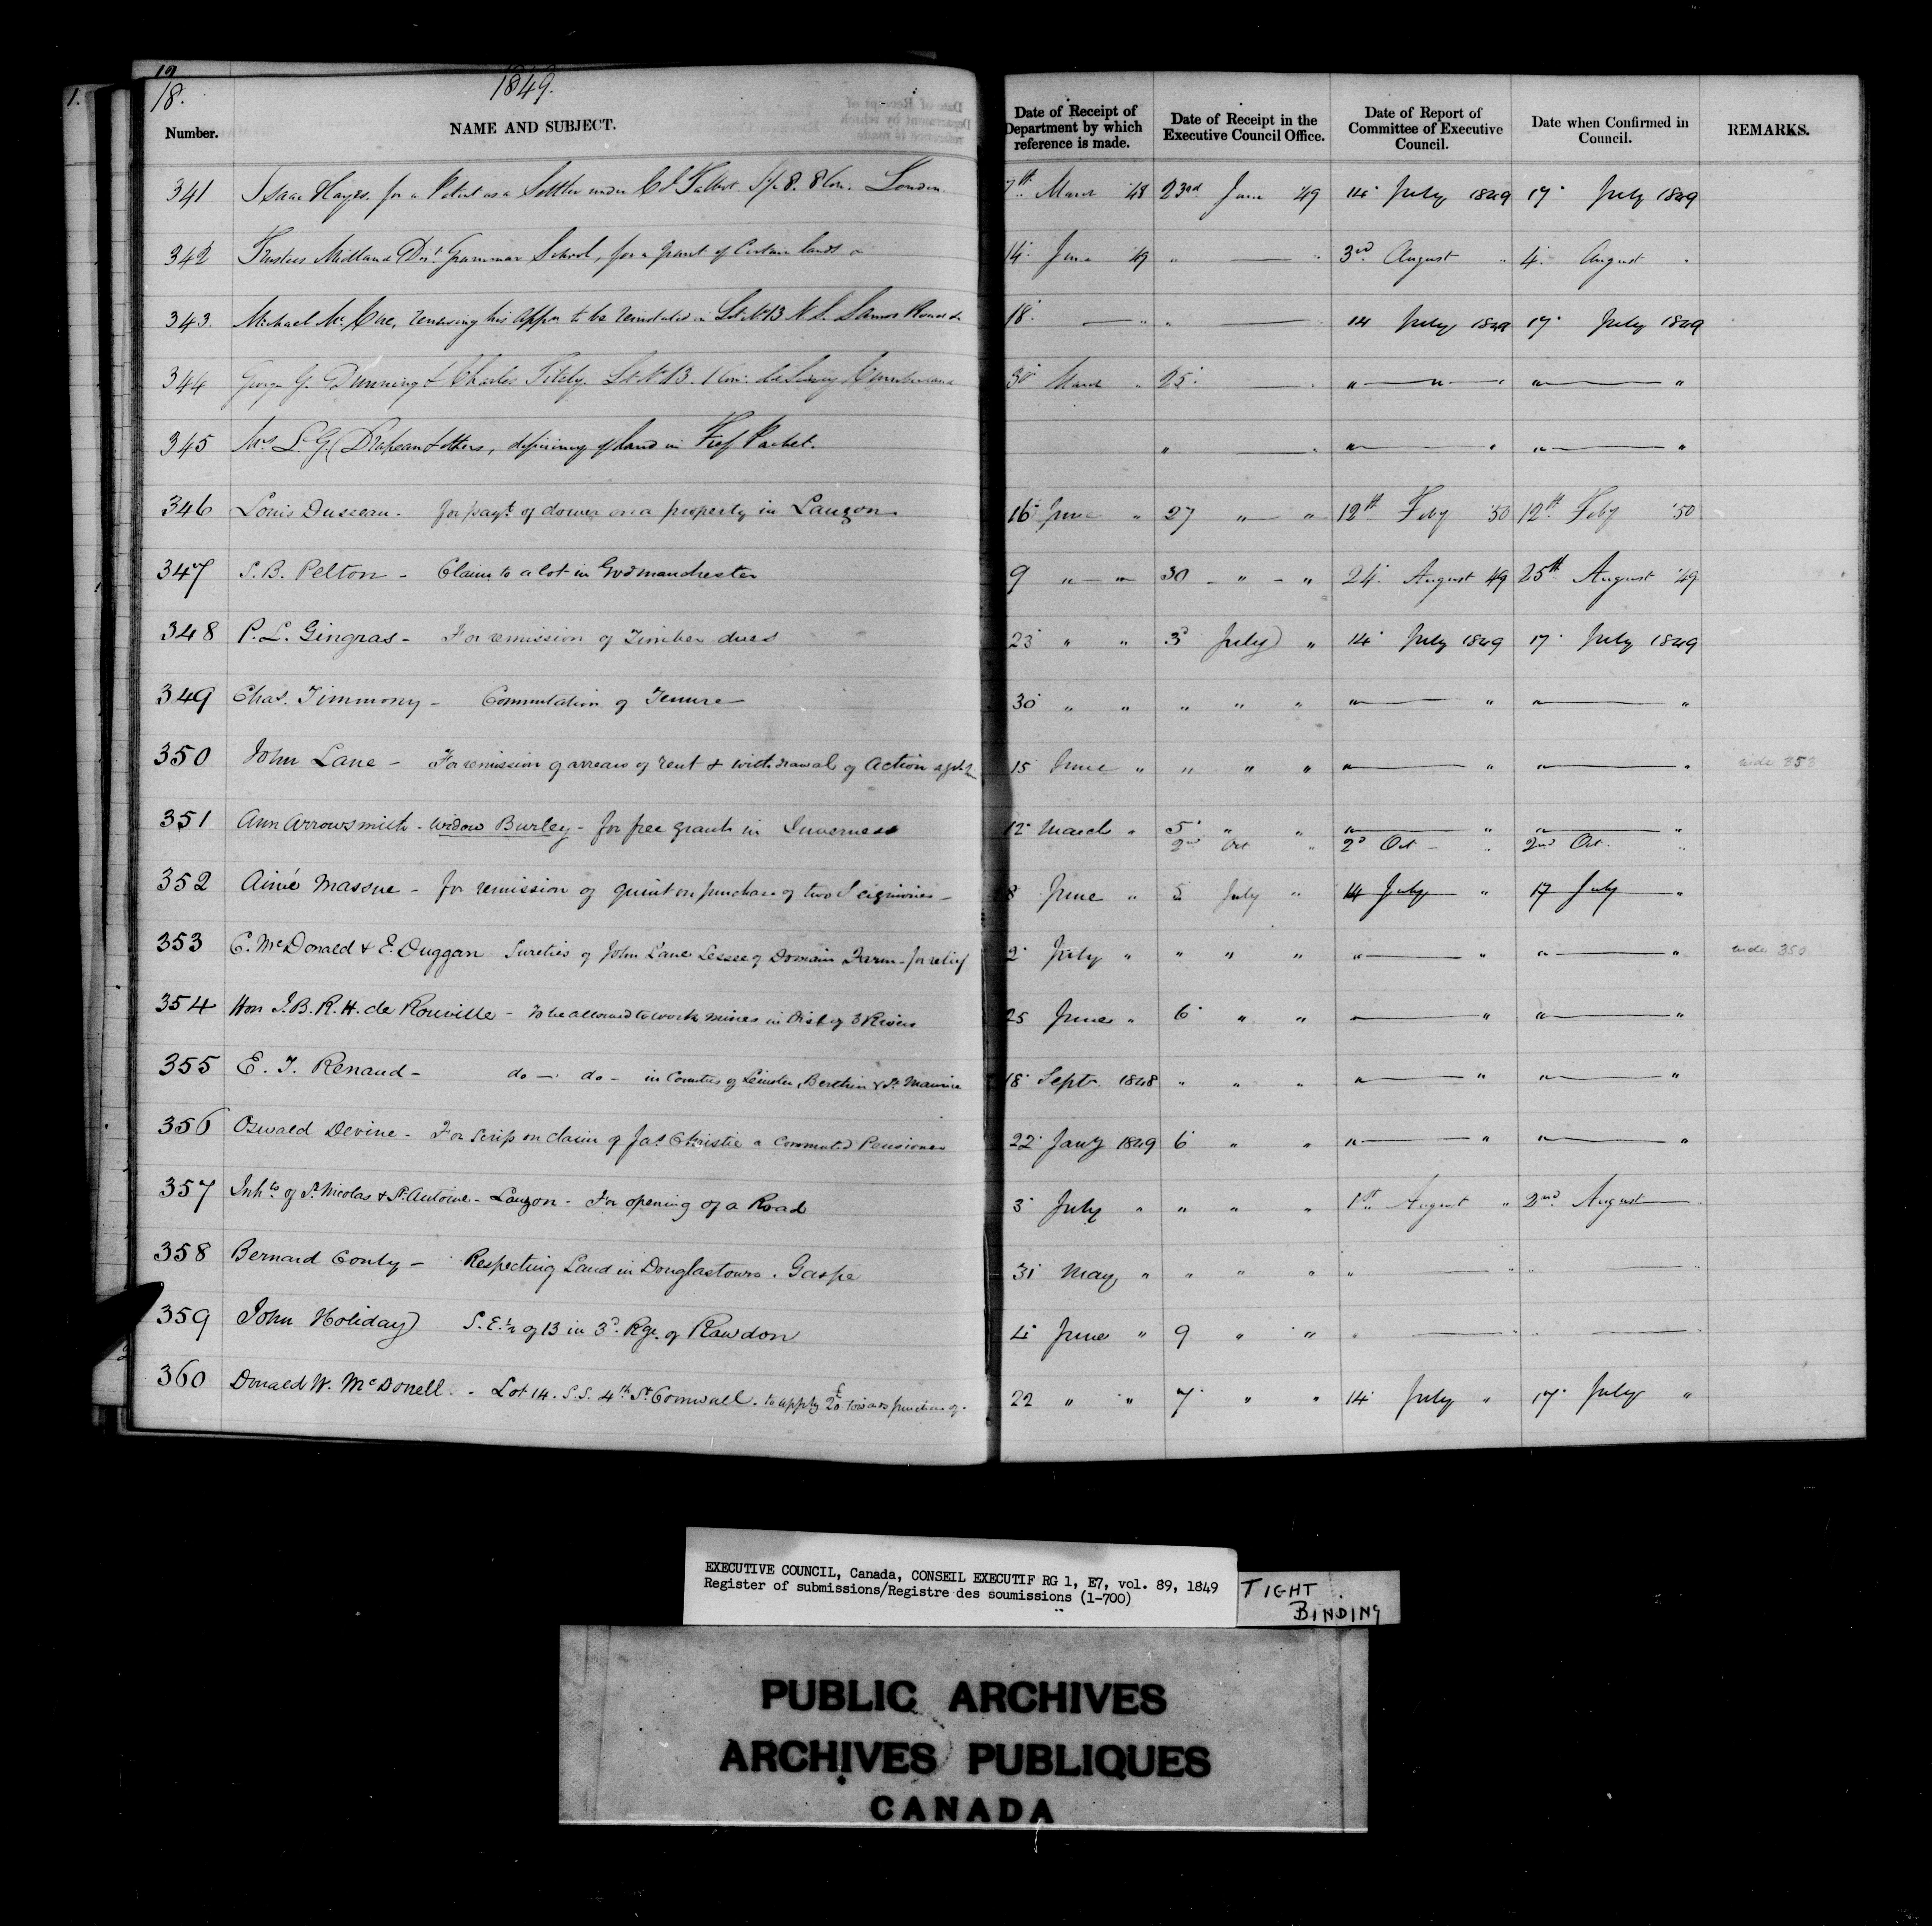 18.
1849.
Number. NAME AND SUBJECT. Date of Receipt of Department by which reference is made. Date of Receipt in the Executive Council Office. Date of Report of Committee of Executive Council. Date when Confirmed in Council. REMARKS.
341 Isaac Hayes, for a Patent as a Settler under Col Talbot. 8. 8 Con. London 7th March 48 23rd June 49 14 July 1849 17 July 1849
342 Trustees Midland Dist Grammar School, for a grant of Certain lands 14 June 49 " — " 3rd August " 4 August "
343. Michael Mc renewing his appn to be reinstated in Lot No 13 N. S. 18 — " " — 14 July 1849 17 July 1849
344 George G. Dunning & Charles Lot No 13. 1 Con. Cumberland 30 March " 25 — " " — " — " " — "
345 Mrs L. G. Drapeau & others, deficiency of land in Fief Pachet. " — " " — " " — "
346 Louis Dusseau - for payt of dower on a property in Lauzon 16 June " 27 " — " 12th Feby '50 12th Feby '50
347 S. B. Pelton - Claim to a lot in Godmanchester 9 " — " 30 - " - " 24 August 49 25th August '49
348 P. L. Gingras - For remission of Timber dues 23 " " 3d July " 14 July 1849 17 July 1849
349 Chas. Timmony - Commutation of Tenure 30 " " " " " " — " " — "
350 John Lane - For remission of arrears of rent & withdrawal of Action 15 June " " " " " — " " — " vide 353
351 Ann Arrowsmith - Widow Burley - for free grant in Inverness 12 March " 5 " " " — " " — "
2nd Oct " 2d Oct - " 2nd Oct. "
352 Aimé Massue - for remission of quint on purchase of two Seigniories - 8 June " 5 July " 14 July — " 17 July — "
353 C. McDonald & E. Duggan Sureties of John Lane Lessee of Domain Farm - for relief 2 July " " " " " — " " — " vide 350
354 Hon J. B. R. H. de Rouville - To be allowed to work mines in Dist of 3 Rivers 25 June " 6 " " " — " " — "
355 E. J. Renaud - do — do - in Counties of Leinster, Berthier & St Maurice 18 Septr 1848 " " " " — " " — "
356 Oswald Devine - For Scrip on claim of Jas Christie a Commuted Pensioner 22 Jany 1849 6 " " " — " " — "
357 Inhts of St Nicolas & St Antoine - Lauzon - For opening of a Road 3 July " " " " 1st August " 2nd August —
358 Bernard Conly - Respecting Land in Douglastown. Gaspe 31 May " " " " " — " " — "
359 John Holiday S. E. ½ of 13 in 3d Rge of Rawdon 4 June " 9 " " " — " " — "
360 Donald W. McDonell. - Lot 14. S.S. 4th St Cornwall. to apply £20 towards purchase of. 22 " " 7 " " 14 July " 17 July "
EXECUTIVE COUNCIL, Canada, CONSEIL EXECUTIF RG 1, E7, vol. 89, 1849
Register of submissions/Registre des soumissions (1-700)
TIGHT
BINDING
PUBLIC ARCHIVES
ARCHIVES PUBLIQUES
CANADA